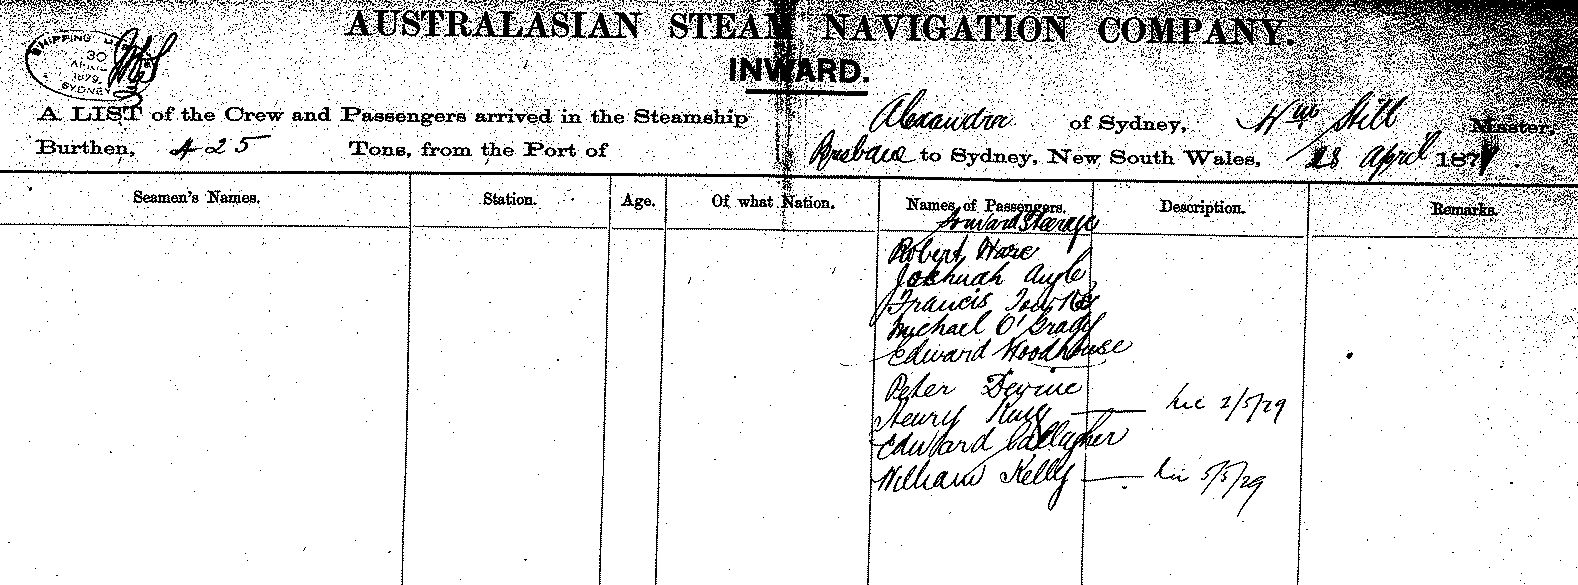 AUSTRALASIAN STEAM NAVIGATION COMPANY.
INWARD.
SHIPPING
30
APRIL
1879
SYDNEY
A LIST of the Crew and Passengers arrived in the Steamship Alexandra of Sydney, Hill Master,
Burthen, 425 Tons, from the Port of Brisbane to Sydney, New South Wales, 28 April 1879
Seamen's Names. Station. Age. Of what Nation. Names of Passengers. Description. Remarks.
Forward Steerage
Robert Hare
Joshuah
Francis
Michael O'Grady
Edward Woodhouse
Peter Devine
Henry King — 2/5/79
Edward Gallagher
William Kelly — 5/5/79